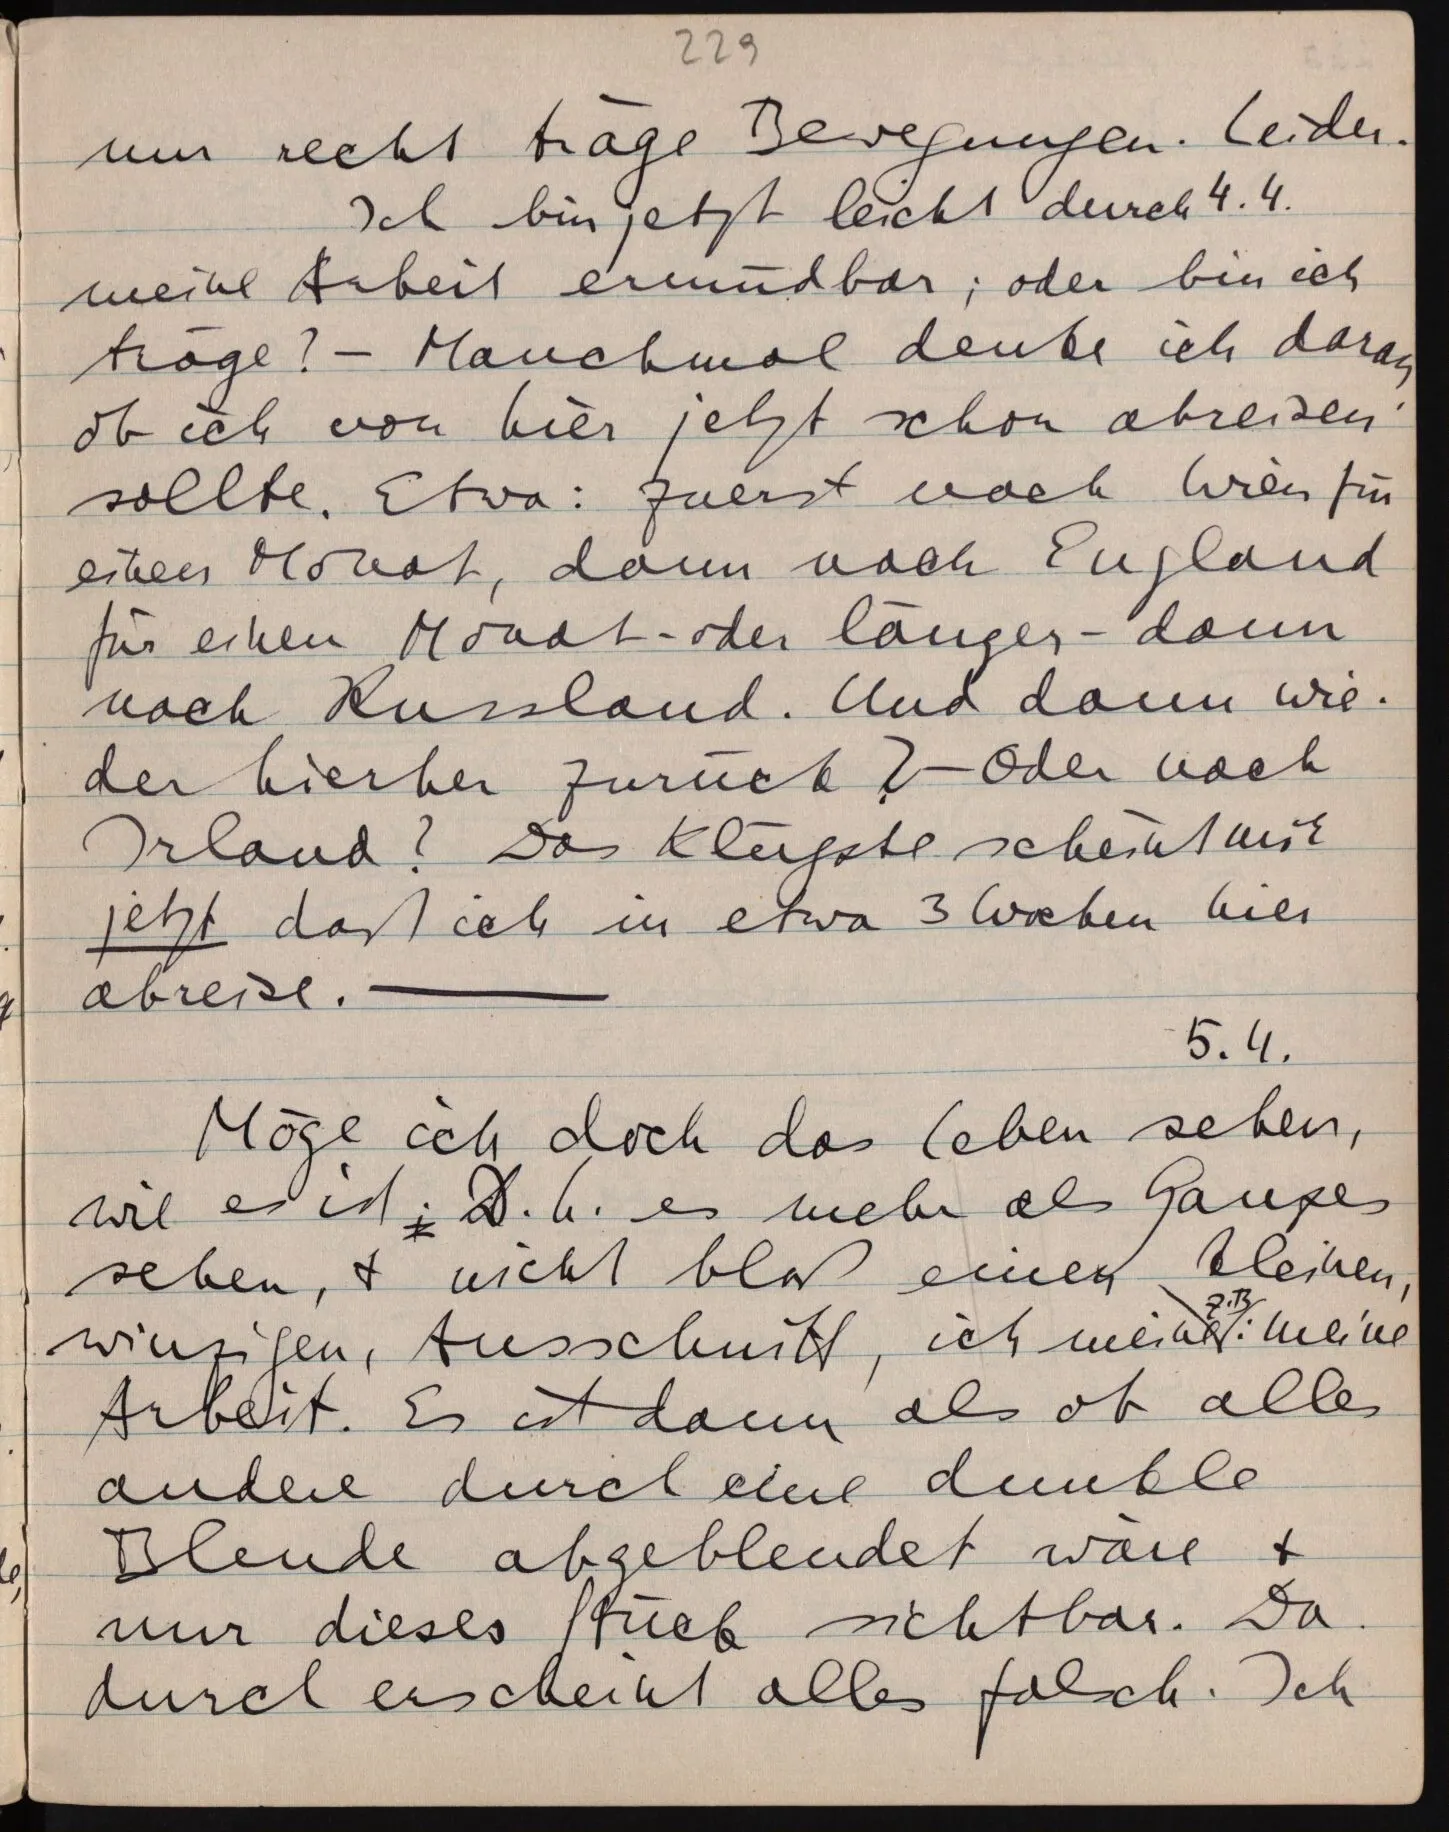 229
nur recht träge Bewegungen. Leider.
Ich bin jetzt leicht durch 4.4.
meine Arbeit ermüdbar; oder bin ich
träge? – Manchmal denke ich daran,
ob ich von hier jetzt schon abreisen
sollte. Etwa: zuerst nach Wien für
einen Monat, dann nach England
für einen Monat – oder länger – dann
nach Russland. Und dann wie-
der hierher zurück? – Oder nach
Irland? Das Klügste scheint mir
jetzt daß ich in etwa 3 Wochen hier
abreise. —
5.4.
Möge ich doch das Leben sehen,
wie es ist; D.h. es mehr als Ganzes
sehen, + nicht bloß einen kleinen,
z.B.
winzigen, Ausschnitt, ich meine: meine
Arbeit. Es ist dann als ob alles
andere durch eine dunkle
Blende abgeblendet wäre +
nur dieses Stück sichtbar. Da-
durch erscheint alles falsch. Ich